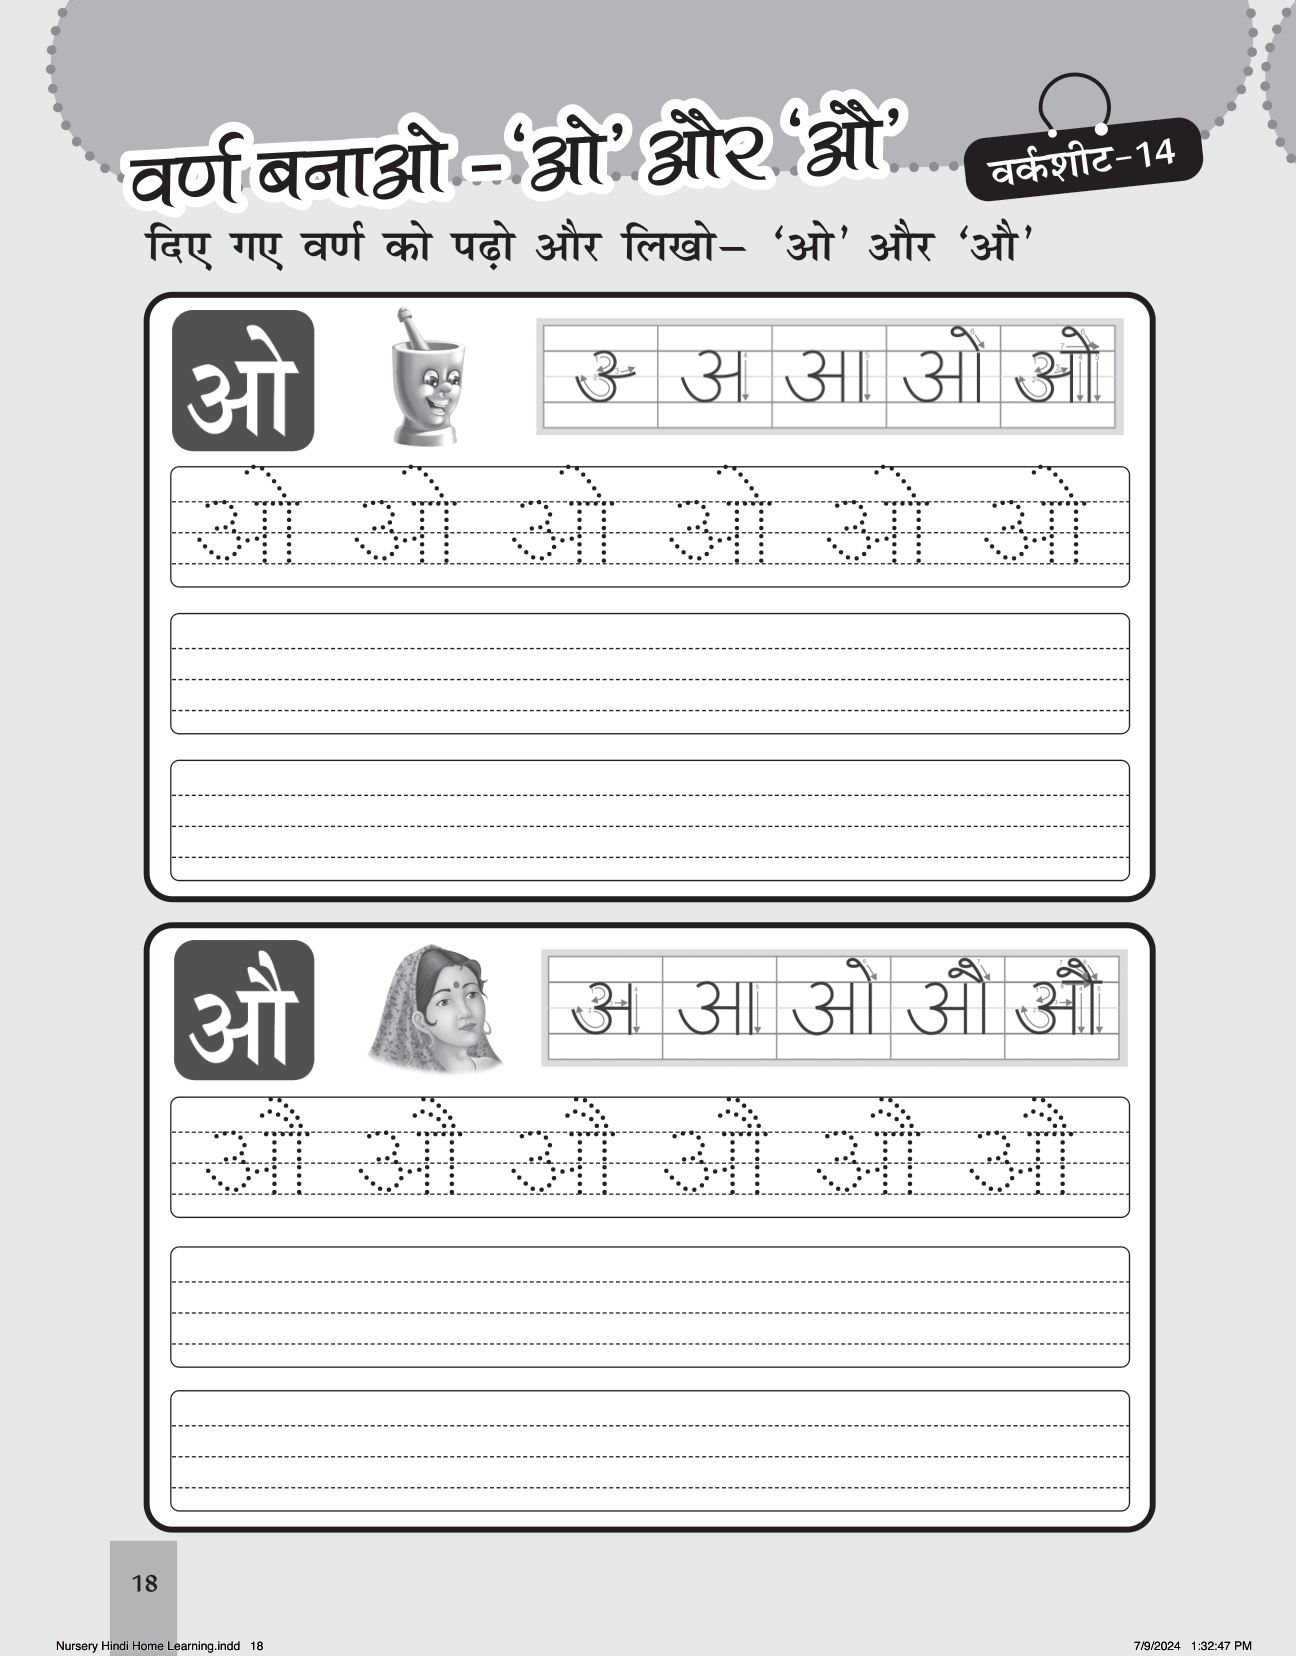 वर्ण बनाओ – ‘ओ’ और ‘औ’
वर्कशीट–14
दिए गए वर्ण को पढ़ो और लिखो– ‘ओ’ और ‘औ’
ओ
अ आ ओ ओ
ओ ओ ओ ओ ओ ओ
औ
अ आ ओ औ औ
औ औ औ औ औ औ
18
Nursery Hindi Home Learning.indd 18
7/9/2024 1:32:47 PM